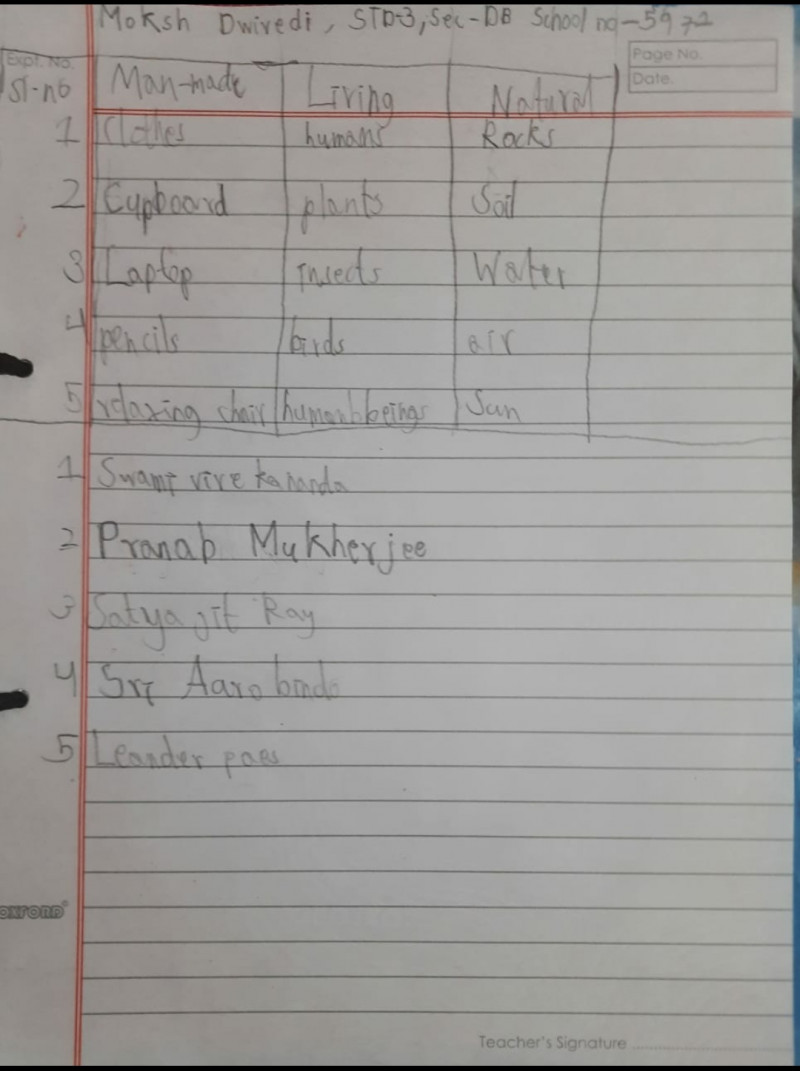 Moksh Dwivedi, STD-3, Sec-DB School no-5972
Page No.
Date.
Expt. No.
Sl-no Man-made Living Natural
1 Clothes humans Rocks
2 Cupboard plants Soil
3 Laptop insects Water
4 pencils birds air
5 relaxing chair human beings Sun
1 Swami vivekananda
2 Pranab Mukherjee
3 Satyajit Ray
4 Sri Aarobindo
5 Leander paes
OXFORD
Teacher's Signature